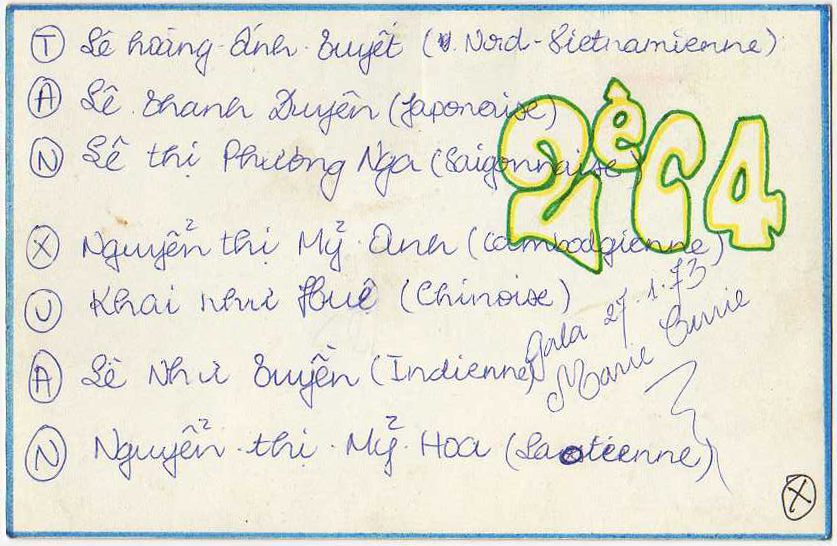 T Lê hoàng Ánh Tuyết (v. Nord-Vietnamienne)
A Lê Thanh Duyên (Japonaise)
N Lê thị Phương Nga (Saigonnaise)
2è C4
X Nguyễn thị Mỹ Anh (Cambodgienne)
U Khai như Huệ (Chinoise)
Gala 27.1.73
Marie Curie
A Lê Như Tuyền (Indienne)
N Nguyễn thị Mỹ Hoa (Laotienne)
X